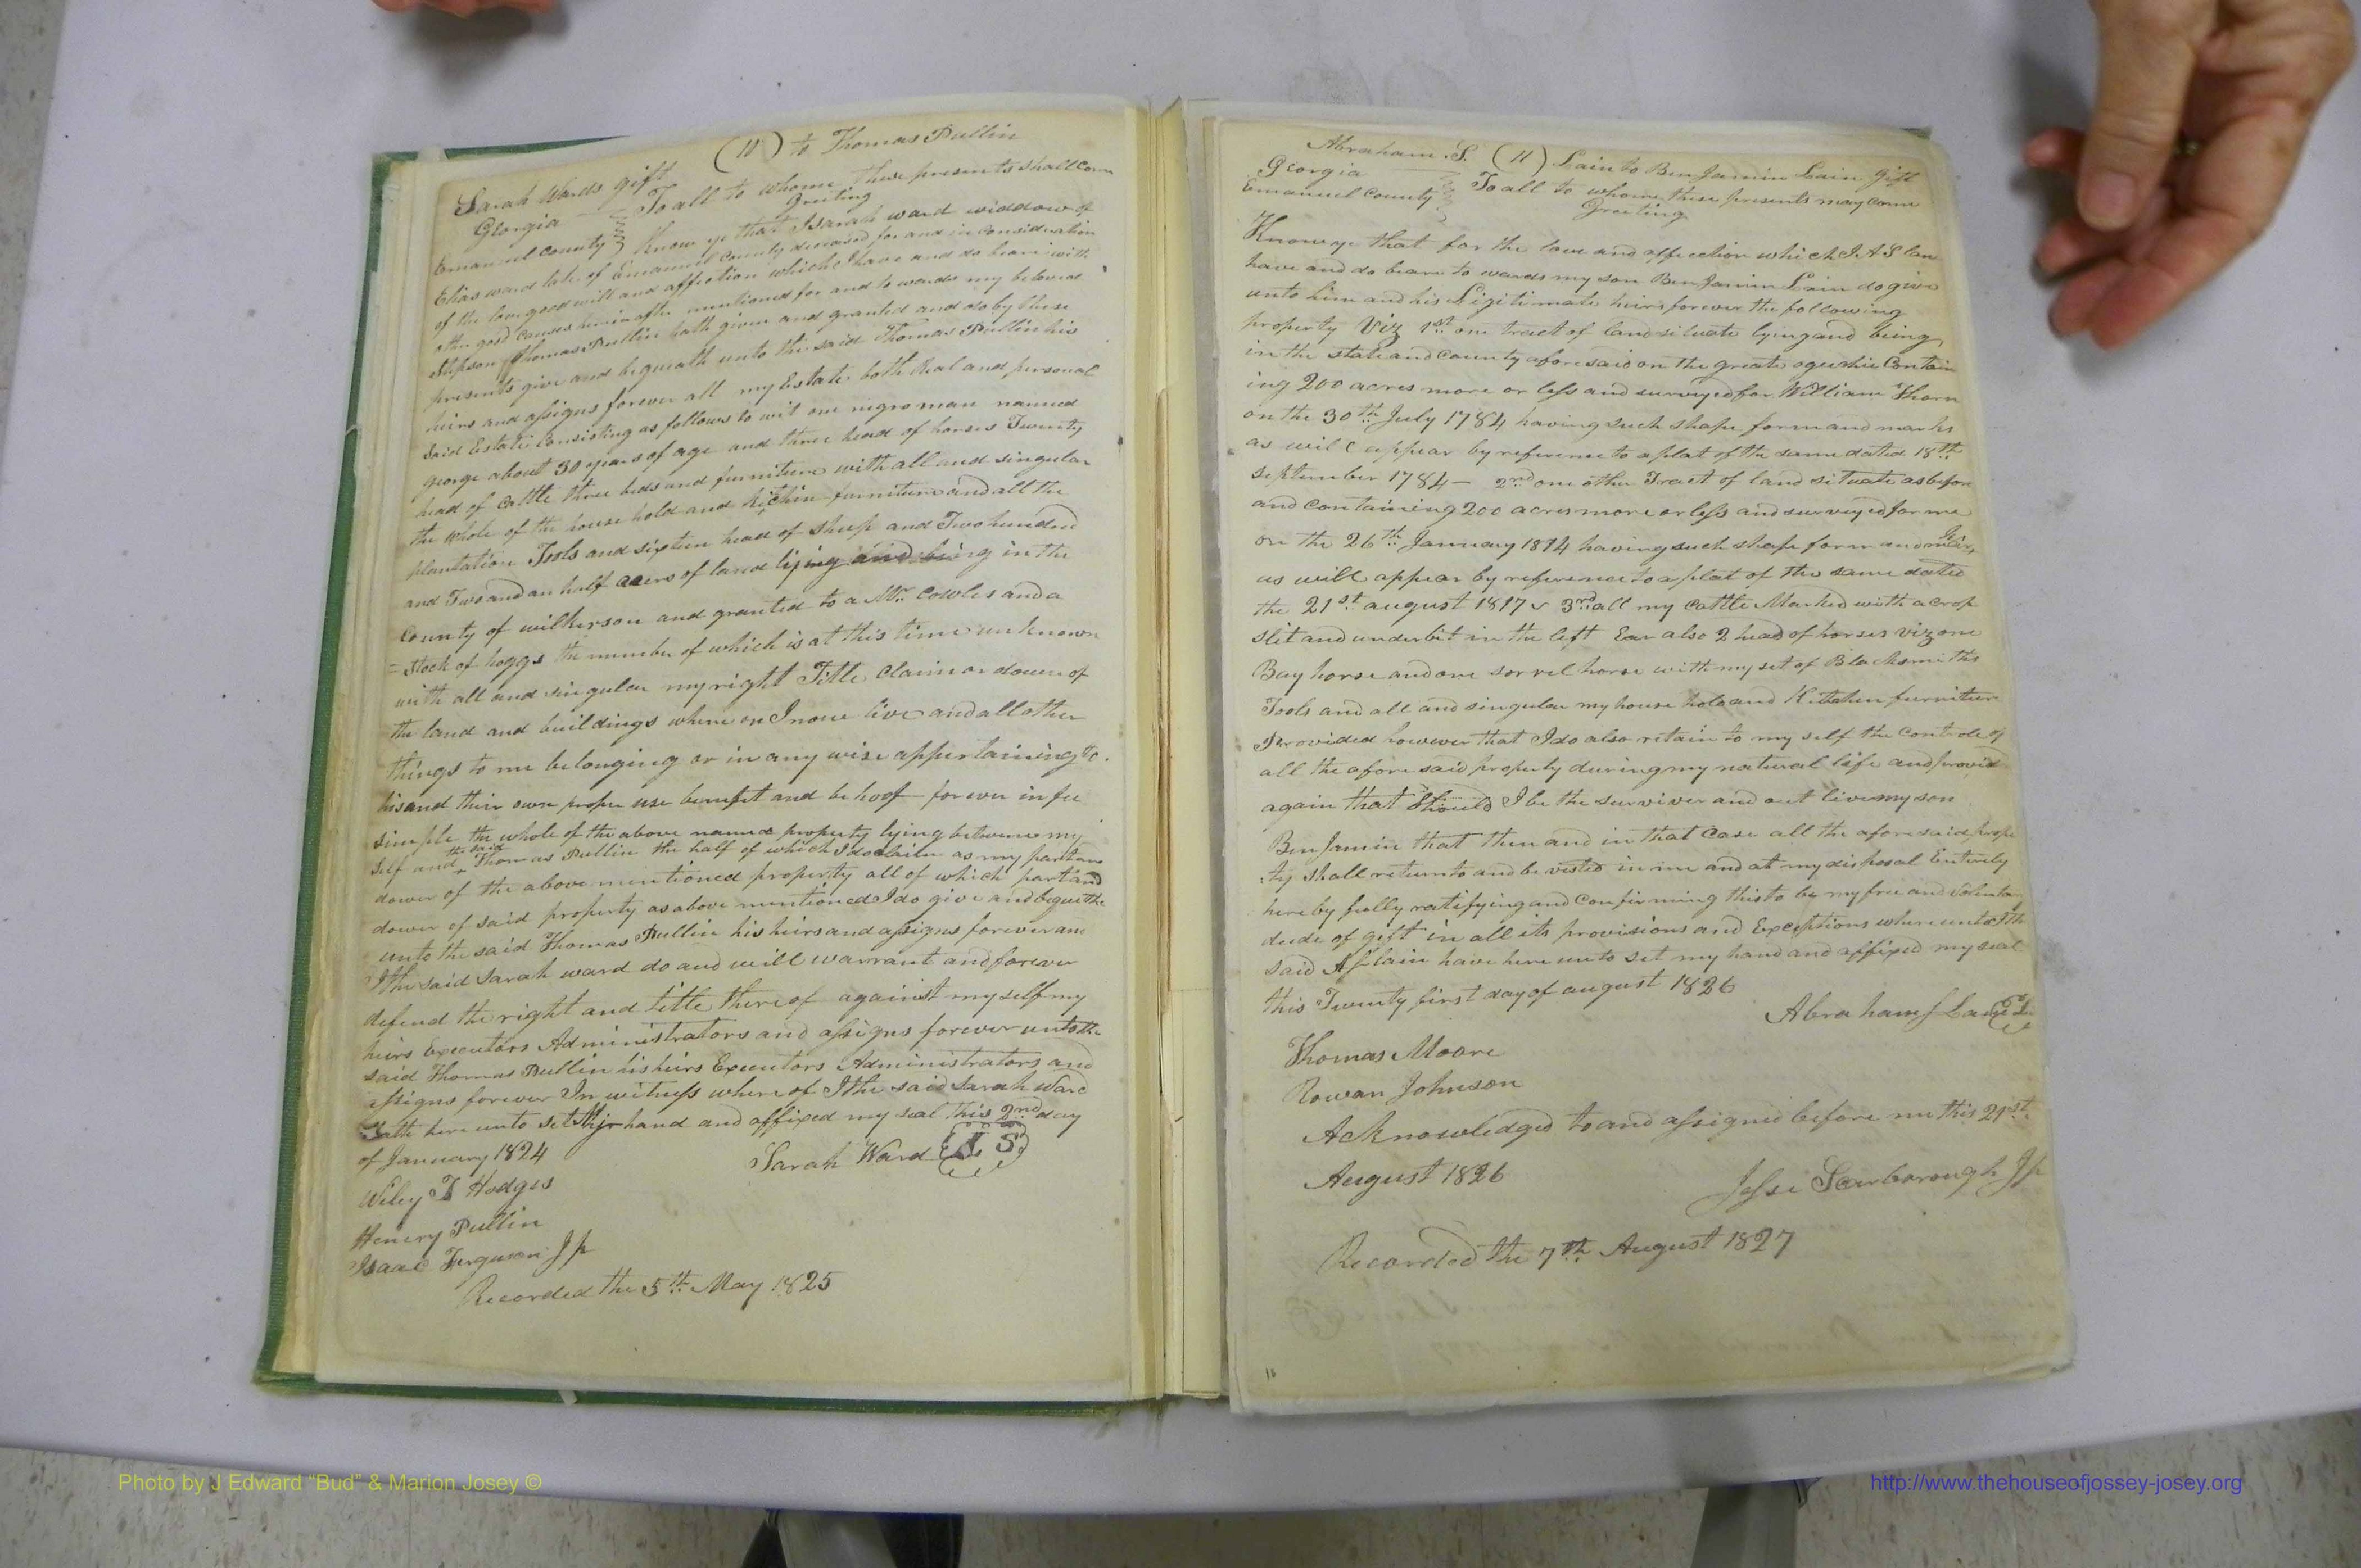 (10) to Thomas Pullin
Sarah Wards gift
Georgia To all to whome these presents shall Com
Emanuel County Greeting
Know ye that I Sarah ward widdow of
Elias ward late of Emanuel County deceased for and in Consideration
of the love good will and affection which I have and do bear with
other good Causes herein after mentioned for and to wards my beloved
Stepson Thomas Pullin hath given and granted and do by these
presents give and bequeath unto the said Thomas Pullin his
heirs and assigns forever all my Estate both Real and personal
Said Estate Consisting as follows to wit one negro man named
george about 30 years of age and three head of horses Twenty
head of Cattle three beds and furniture with all and singular
the whole of the house hold and kitchin furniture and all the
plantation Tools and sixteen head of sheep and Two hundred
and Two and an half acers of land lying and being in the
County of wilkerson and granted to a Mr. Cowles and a
= stock of hoggs the number of which is at this time unknown
with all and singular my right Title Claim or dower of
the land and buildings where on I now live and all other
things to me belonging or in any wise appertaining to
his and their own proper use benefit and behoof forever in fee
simple the whole of the above named property lying between my
self and the said Thomas Pullin the half of which I do claim as my part and
dower of the above mentioned property all of which part and
dower of said property as above mentioned I do give and bequethe
unto the said Thomas Pullin his heirs and assigns forever and
I the said Sarah ward do and will warrant and forever
defend the right and title thereof against my self my
heirs Executors Administrators and assigns forever unto the
said Thomas Pullin his heirs Executors Administrators and
assigns forever In witness where of I the said Sarah Ward
hath here unto set my hand and affixed my seal this 2nd day
of January 1824
Sarah Ward L S
Wiley T Hodges
Henery Pullin
Isaac Ferguson Jp
Recorded the 5th May 1825
Abraham S. (11) Lain to BenJamin Lain Gift
Georgia To all to whome these presents may Come
Emanuel County Greeting
Know ye that for the love and affecction which I A S Lan
have and do beare to wards my son BenJamin Lain do give
unto him and his Ligitimate heirs forever the following
property Viz 1st one tract of land situate lying and being
in the state and County afore said on the greate ogechie Contain
ing 200 acres more or less and surveyed for William Thorn
on the 30th July 1784 having such shape form and marks
as will appear by reference to a plat of the same dated 18th
september 1784 - 2nd one other Tract of land situate as before
and Containing 200 acres more or less and surveyed for me
on the 26th January 1814 having such shape form and marks
as will appear by reference to a plat of the same dated
the 21st august 1817 3rd all my Cattle Marked with a Crop
slit and underbit in the left Ear also 2 head of horses viz one
Bay horse and one sorrel horse with my set of Blacksmiths
Tools and all and singular my house hold and Kitchen furniture
Provided however that I do also retain to my self the Controle of
all the afore said property during my natural life and provid
again that Should I be the surviver and out live my son
BenJamin that then and in that Case all the afore said prope
ty shall return to and be vested in me and at my disposal Entirely
here by fully ratifying and Confirming this to be my free and Volintary
deede of gift in all its provisions and Exceptions where unto I the
said A S Lain have here unto set my hand and affixed my seal
this Twenty first day of august 1826
Abraham S Lain
Thomas Moore
Rowan Johnson
Acknowledged to and assigned before me this 21st
August 1826
Jesse Scarborough Jp
Recorded the 7th August 1827
11
Photo by J Edward “Bud” & Marion Josey ©
http://www.thehouseofjossey-josey.org